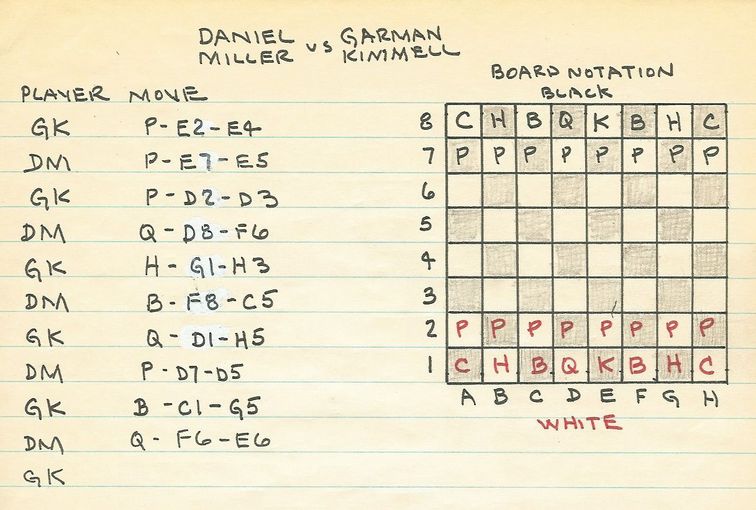 DANIEL MILLER vs GARMAN KIMMELL
BOARD NOTATION
BLACK
PLAYER MOVE
GK P-E2-E4
DM P-E7-E5
GK P-D2-D3
DM Q-D8-F6
GK H-G1-H3
DM B-F8-C5
GK Q-D1-H5
DM P-D7-D5
GK B-C1-G5
DM Q-F6-E6
GK
8 C H B Q K B H C
7 P P P P P P P P
6
5
4
3
2 P P P P P P P P
1 C H B Q K B H C
A B C D E F G H
WHITE